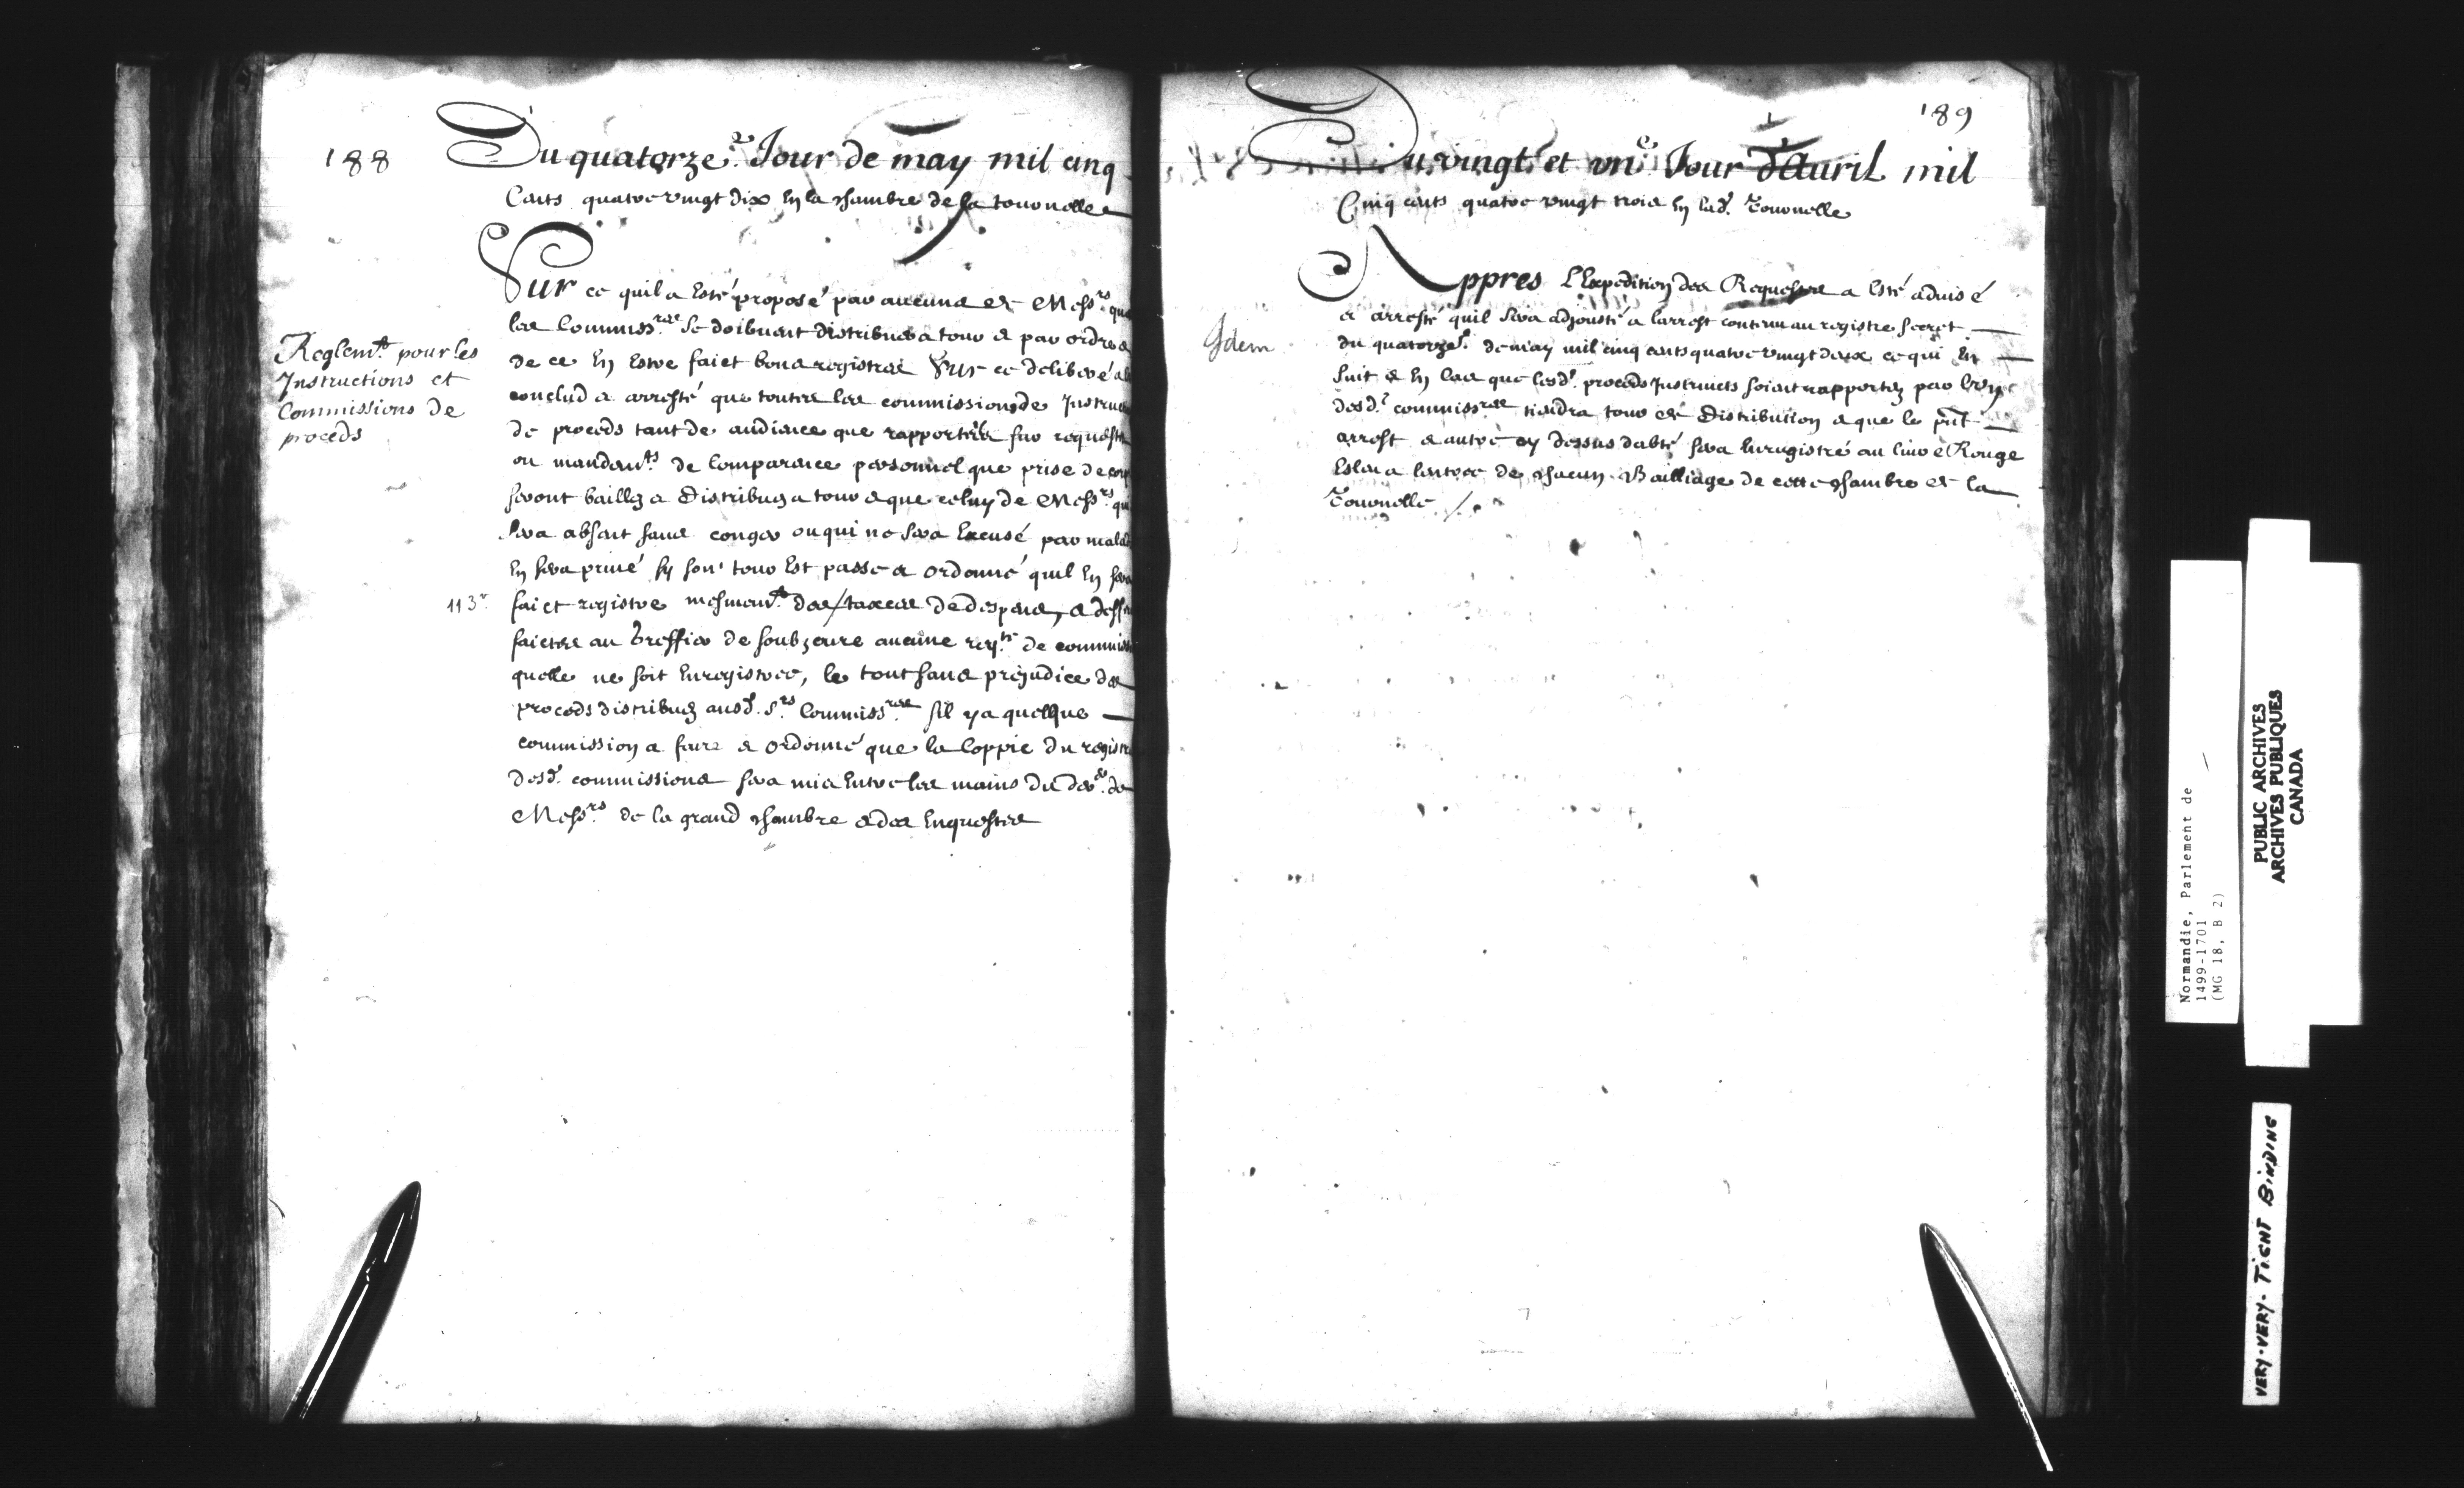 188
Du quatorze.e Jour de may mil cinq
Cents quatre vingt dix En la chambre de la tournelle
Reglem.t pour les
Instructions et
Commissions de
proceds
Sur ce quil a Esté proposé par aucuns de Mess.rs que
les Commiss.res se doibuent distribuer a tour & par ordre &
de ce En Estre faict bons registres Sur ce deliberé a
conclud & arresté que toutes les commissions de Instru
de proceds tant de audience que rapportées sur requestes
ou mandem.ts de Comparence personnel que prise de corps
seront baillez & Distribuez a tour & que celuy de Mess.rs qui
sera absent sans conger ou qui ne sera Excusé par malad
En sera priué sy son tour Est passé & ordonné quil En sera
113.r
faict registre mesmem.t des taxces de despens, & deffen
faictes au Greffier de soubzcrire aucune req.te de commiss
quelle ne soit Enregistrée, le tout sans prejudice des
proceds distribuez ausd. s.rs Commiss.res sil y a quelque
commission a faire & ordonné que la Coppie du registre
desd. commissions sera mis Entre les mains du de
Mess.rs de la grand chambre & des Enquestes
189
Du vingt et vn.e Jour d'Auril mil
Cinq cents quatre vingt trois En lad. Tournelle
Idem
Appres L'Expedition des Requestes a Esté aduisé
& arresté quil sera adjousté a larrest contenu au registre secret
du quatorze.e de may mil cinq cents quatre vingt deux ce qui En
suit & En cas que lesd. proceds Instruicts soient rapportez par lvn
desd. commiss.res tiendra tour de Distribution & que le pnt
arrest & autre cy dessus dabté sera Enregistré au liure Rouge
Estau a lentree de chacun Bailliage de cette chambre & la
Tournelle ./.
Normandie, Parlement de
1499-1701
(MG 18, B 2)
PUBLIC ARCHIVES
ARCHIVES PUBLIQUES
CANADA
VERY-VERY-TIGHT BINDING